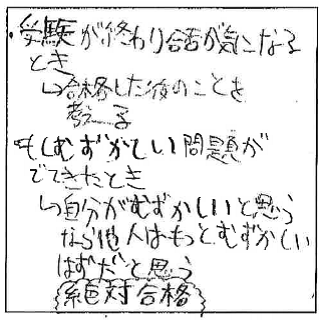 ・受験が終わり合否が気になる
とき
↳合格した後のことを
考える
・もしむずかしい問題が
でてきたとき
↳自分がむずかしいと思う
なら他人はもっとむずかしい
はずだと思う
絶対合格